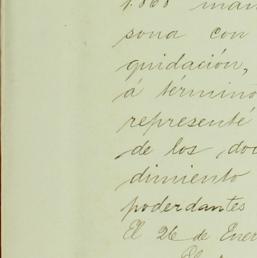 1.868 man
sona con
quidación,
á término
representé
de los doc
dimiento
poderdantes
El 26 de Ener
El